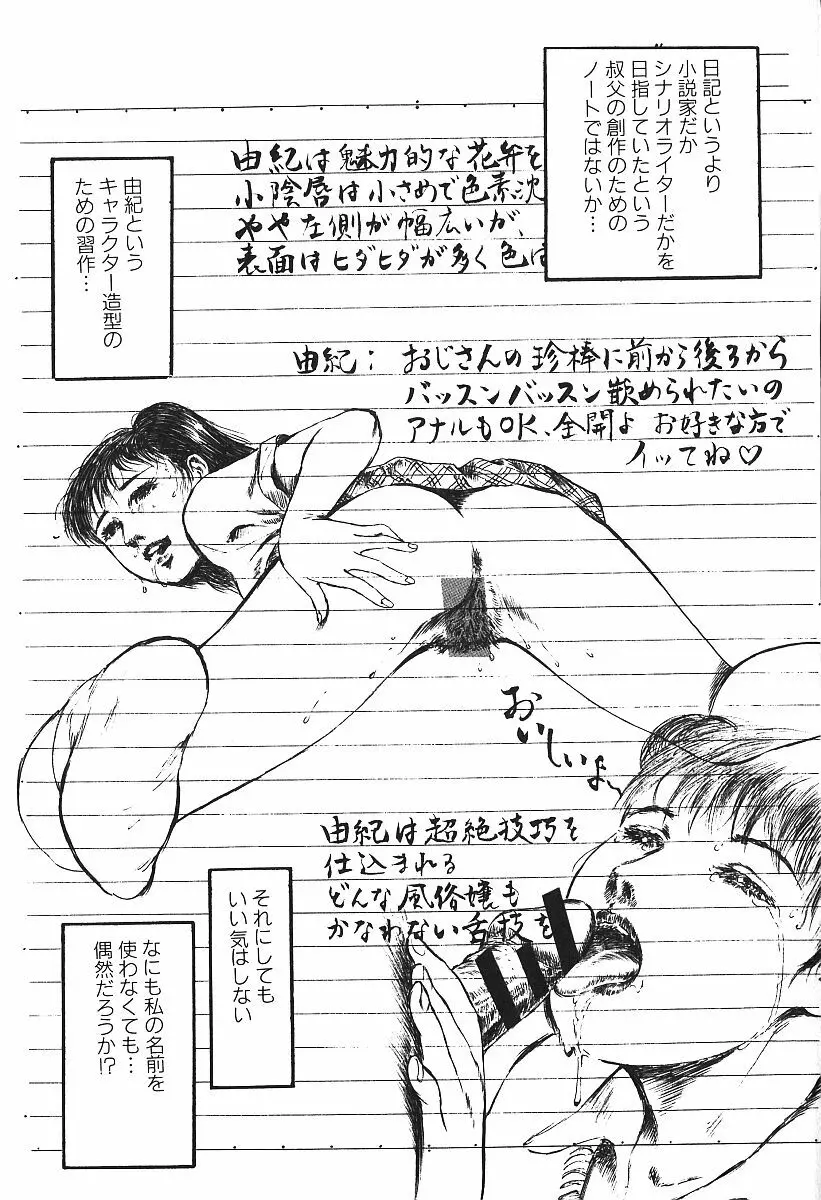 日記というより
小説家だか
シナリオライターだかを
目指していたという
叔父の創作のための
ノートではないか…
由紀という
キャラクター造型の
ための習作…
由紀は魅力的な花弁を
小陰唇は小さめで色素沈
やや左側が幅広いが、
表面はヒダヒダが多く色は
由紀：おじさんの珍棒に前から後ろから
バッスンバッスン嵌められたいの
アナルもOK、全開よ お好きな方で
イッてね♡
おいしいよ〜
由紀は超絶技巧を
仕込まれる
どんな風俗嬢も
かなわない舌技を
それにしても
いい気はしない
なにも私の名前を
使わなくても…
偶然だろうか!?